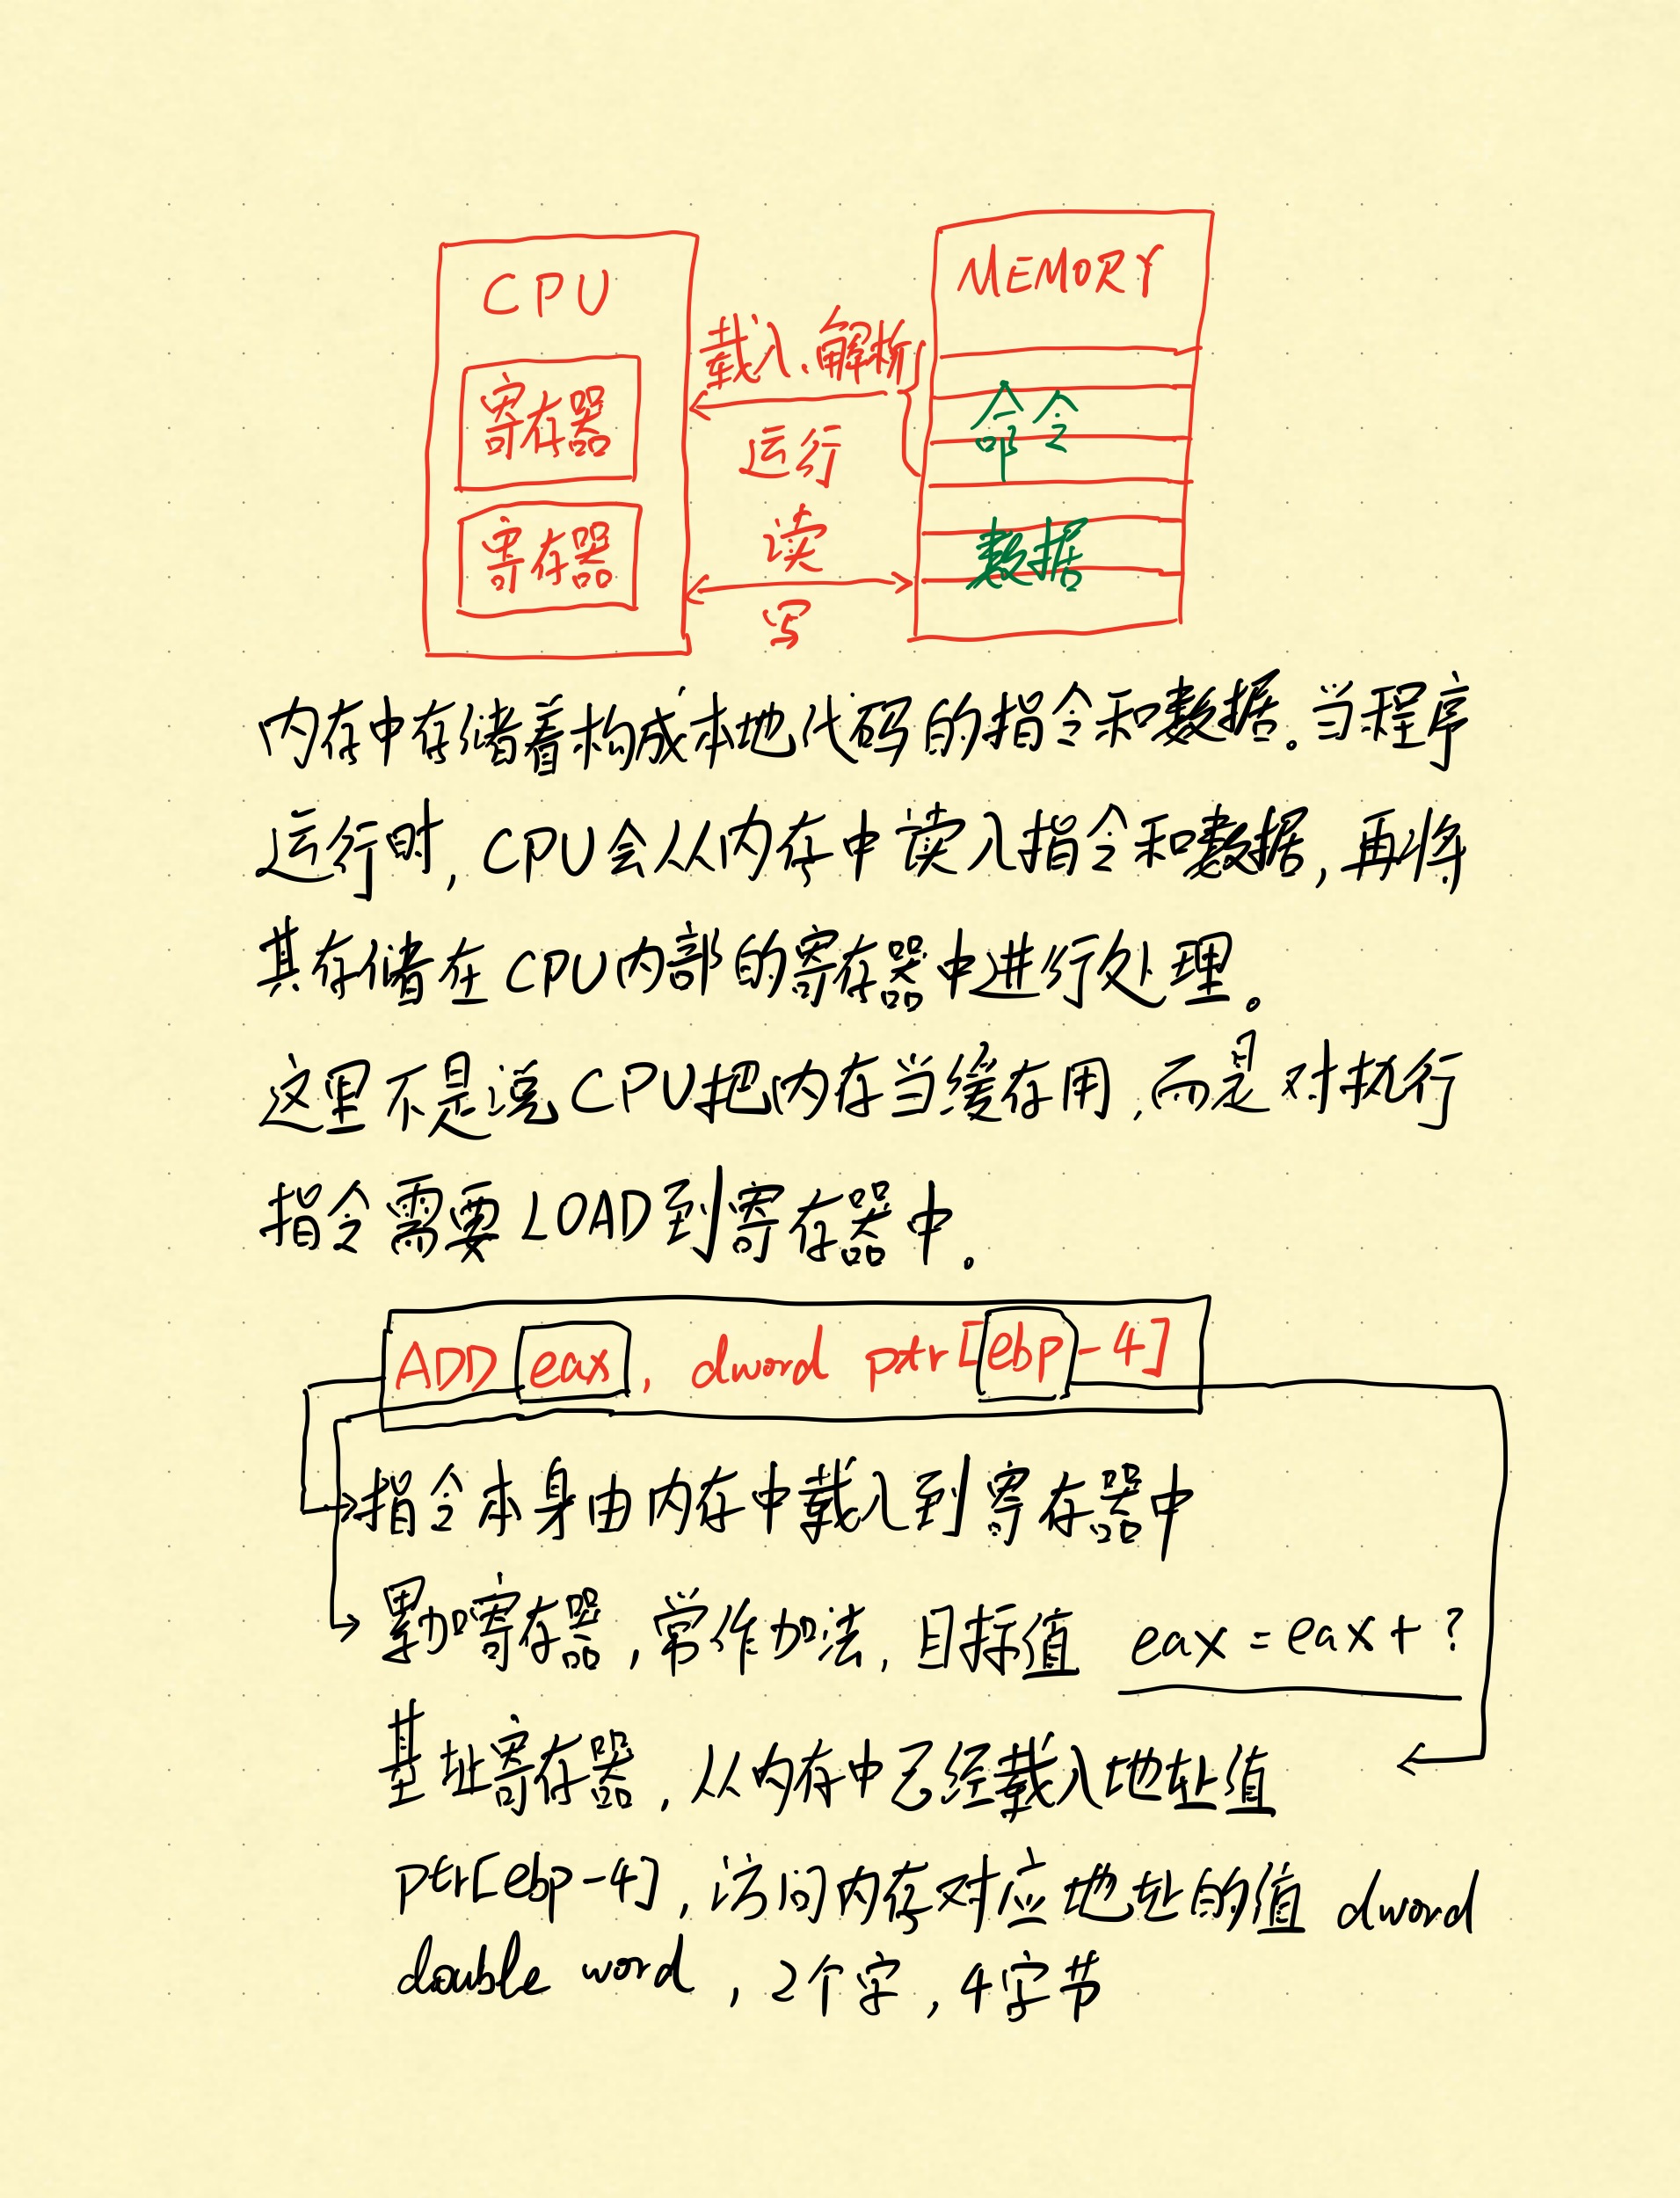 CPU
MEMORY
载入、解析
运行
寄存器
命令
寄存器
读
写
数据
内存中存储着构成本地代码的指令和数据。当程序
运行时, CPU会从内存中读入指令和数据, 再将
其存储在CPU内部的寄存器中进行处理。
这里不是说CPU把内存当缓存用, 而是对执行
指令需要LOAD到寄存器中。
ADD eax, dword ptr[ebp-4]
指令本身由内存中载入到寄存器中
累加寄存器, 常作加法, 目标值 eax = eax + ?
基址寄存器, 从内存中已经载入地址值
ptr[ebp-4], 访问内存对应地址的值 dword
double word, 2个字, 4字节